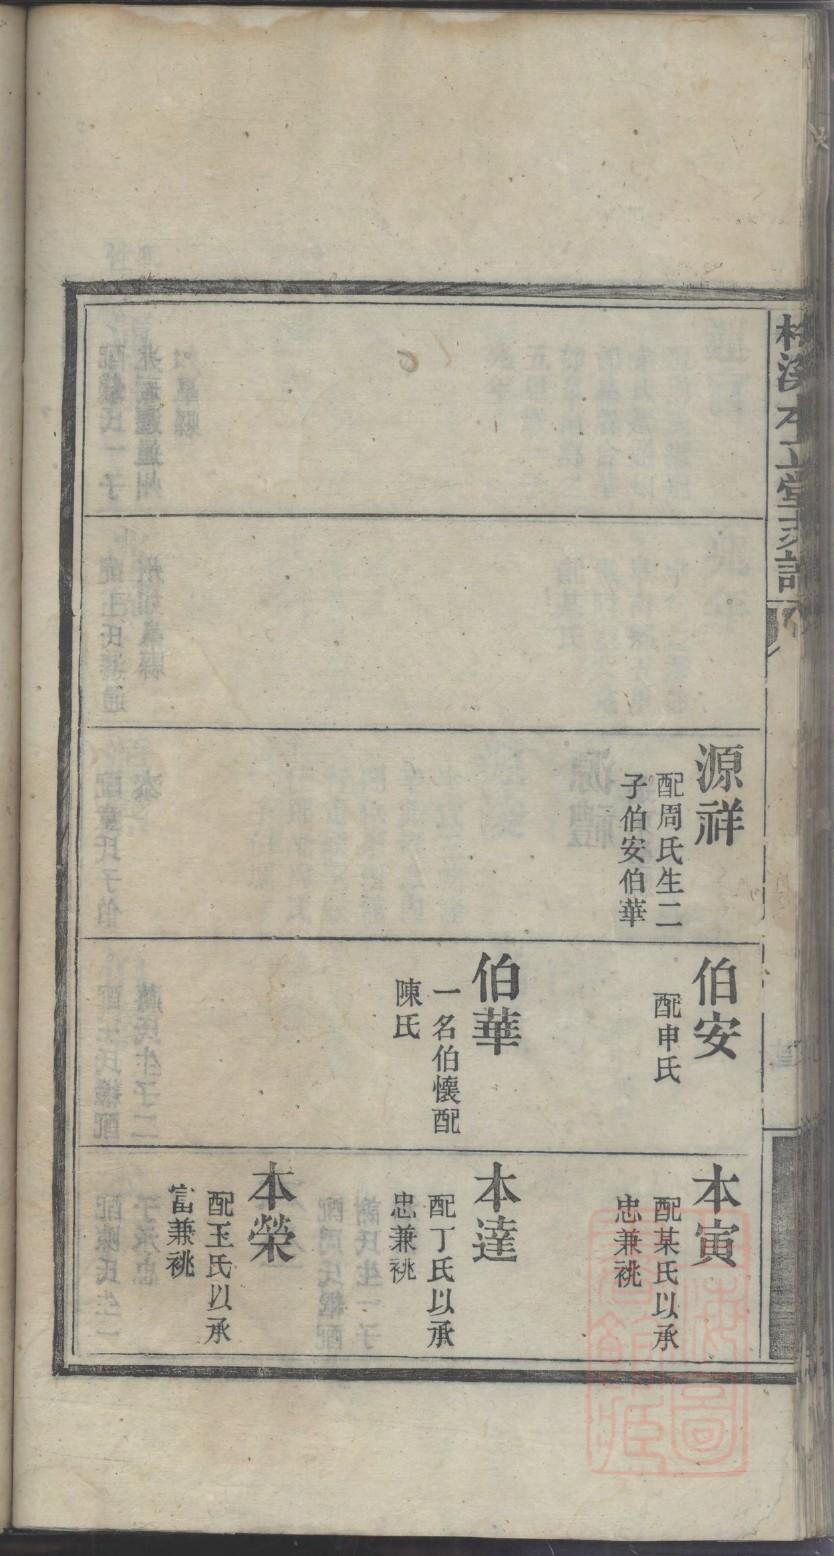 源祥
配周氏生二
子伯安伯華
伯安
配申氏
伯華
一名伯懷配
陳氏
本寅
配某氏以承
忠兼祧
本達
配丁氏以承
忠兼祧
本榮
配玉氏以承
富兼祧